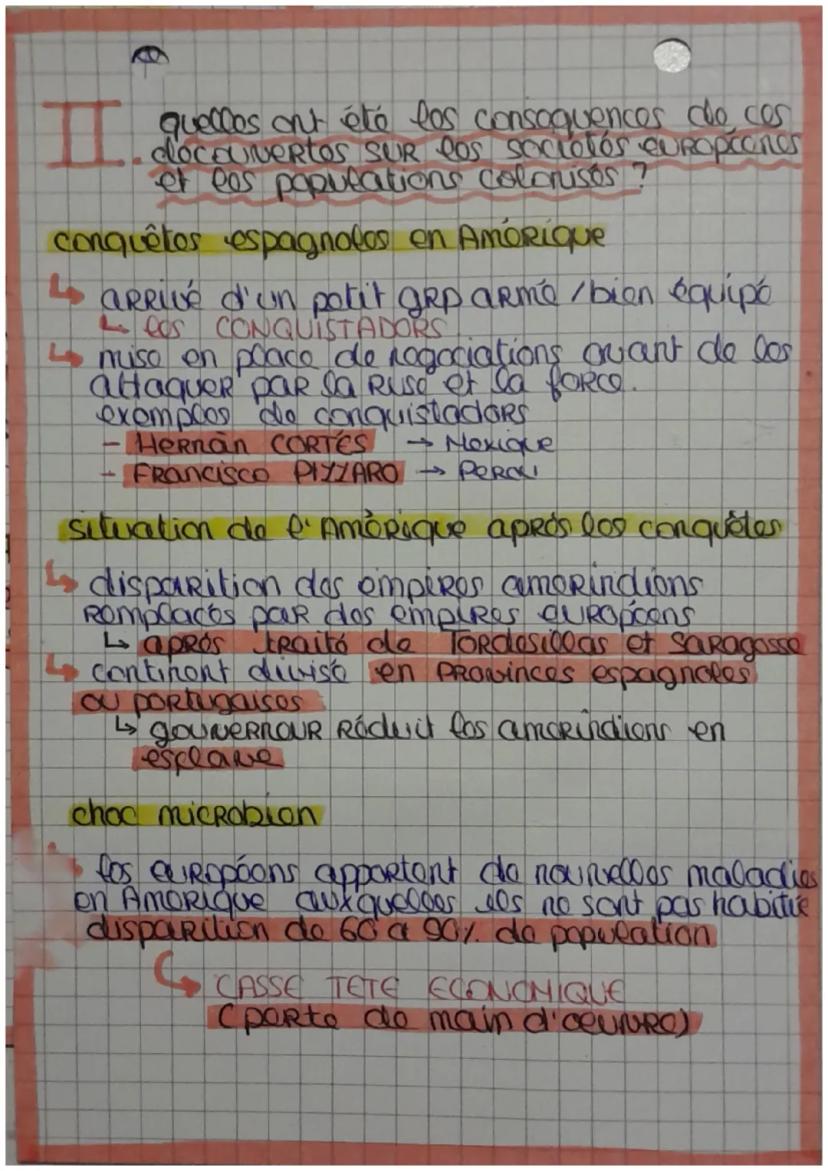 II. quelles ont été les conséquences de ces
découvertes sur les sociétés européenes
et les populations colonisés ?
conquêtes espagnoles en Amérique
↳ arrivé d'un petit grp armé / bien équipé
↳ les CONQUISTADORS
↳ mise en place de negociations avant de les
attaquer par la ruse et la force.
exemples de conquistadors
- Hernán CORTÉS → Mexique
- Francisco PIZZARO → Perou
situation de l'Amérique après les conquêtes
↳ disparition des empires amerindiens
remplacés par des empires européens
↳ après traité de Tordesillas et Saragosse
↳ continent divisé en provinces espagnoles
ou portugaises
↳ gouverneur réduit les amerindiens en
esclave
choc microbien
les européens apportent de nouvelles maladies
en Amerique auxquelles ils ne sont pas habitué
disparition de 60 a 90% de population
↳ CASSE TETE ECONOMIQUE
(perte de main d'œuvre)